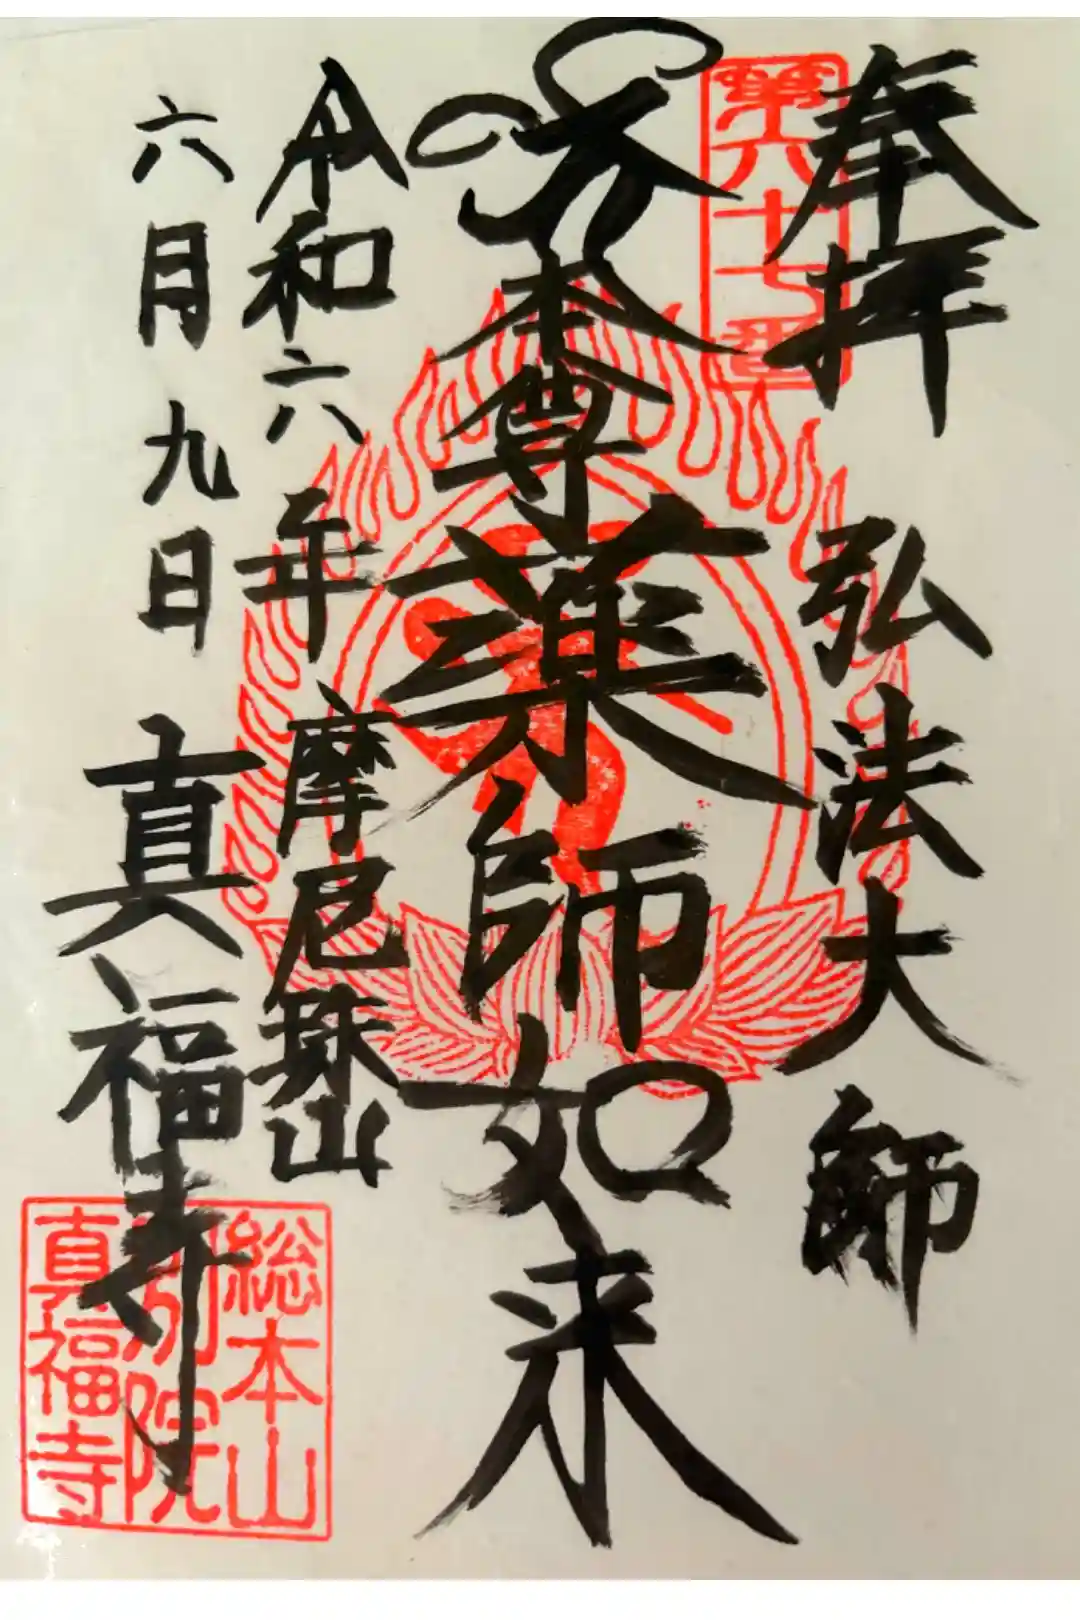 奉拝
弘法大師
第六十七番
本尊
薬師如来
令和六年
摩尼珠山
六月九日
真福寺
総本山
別院
真福寺